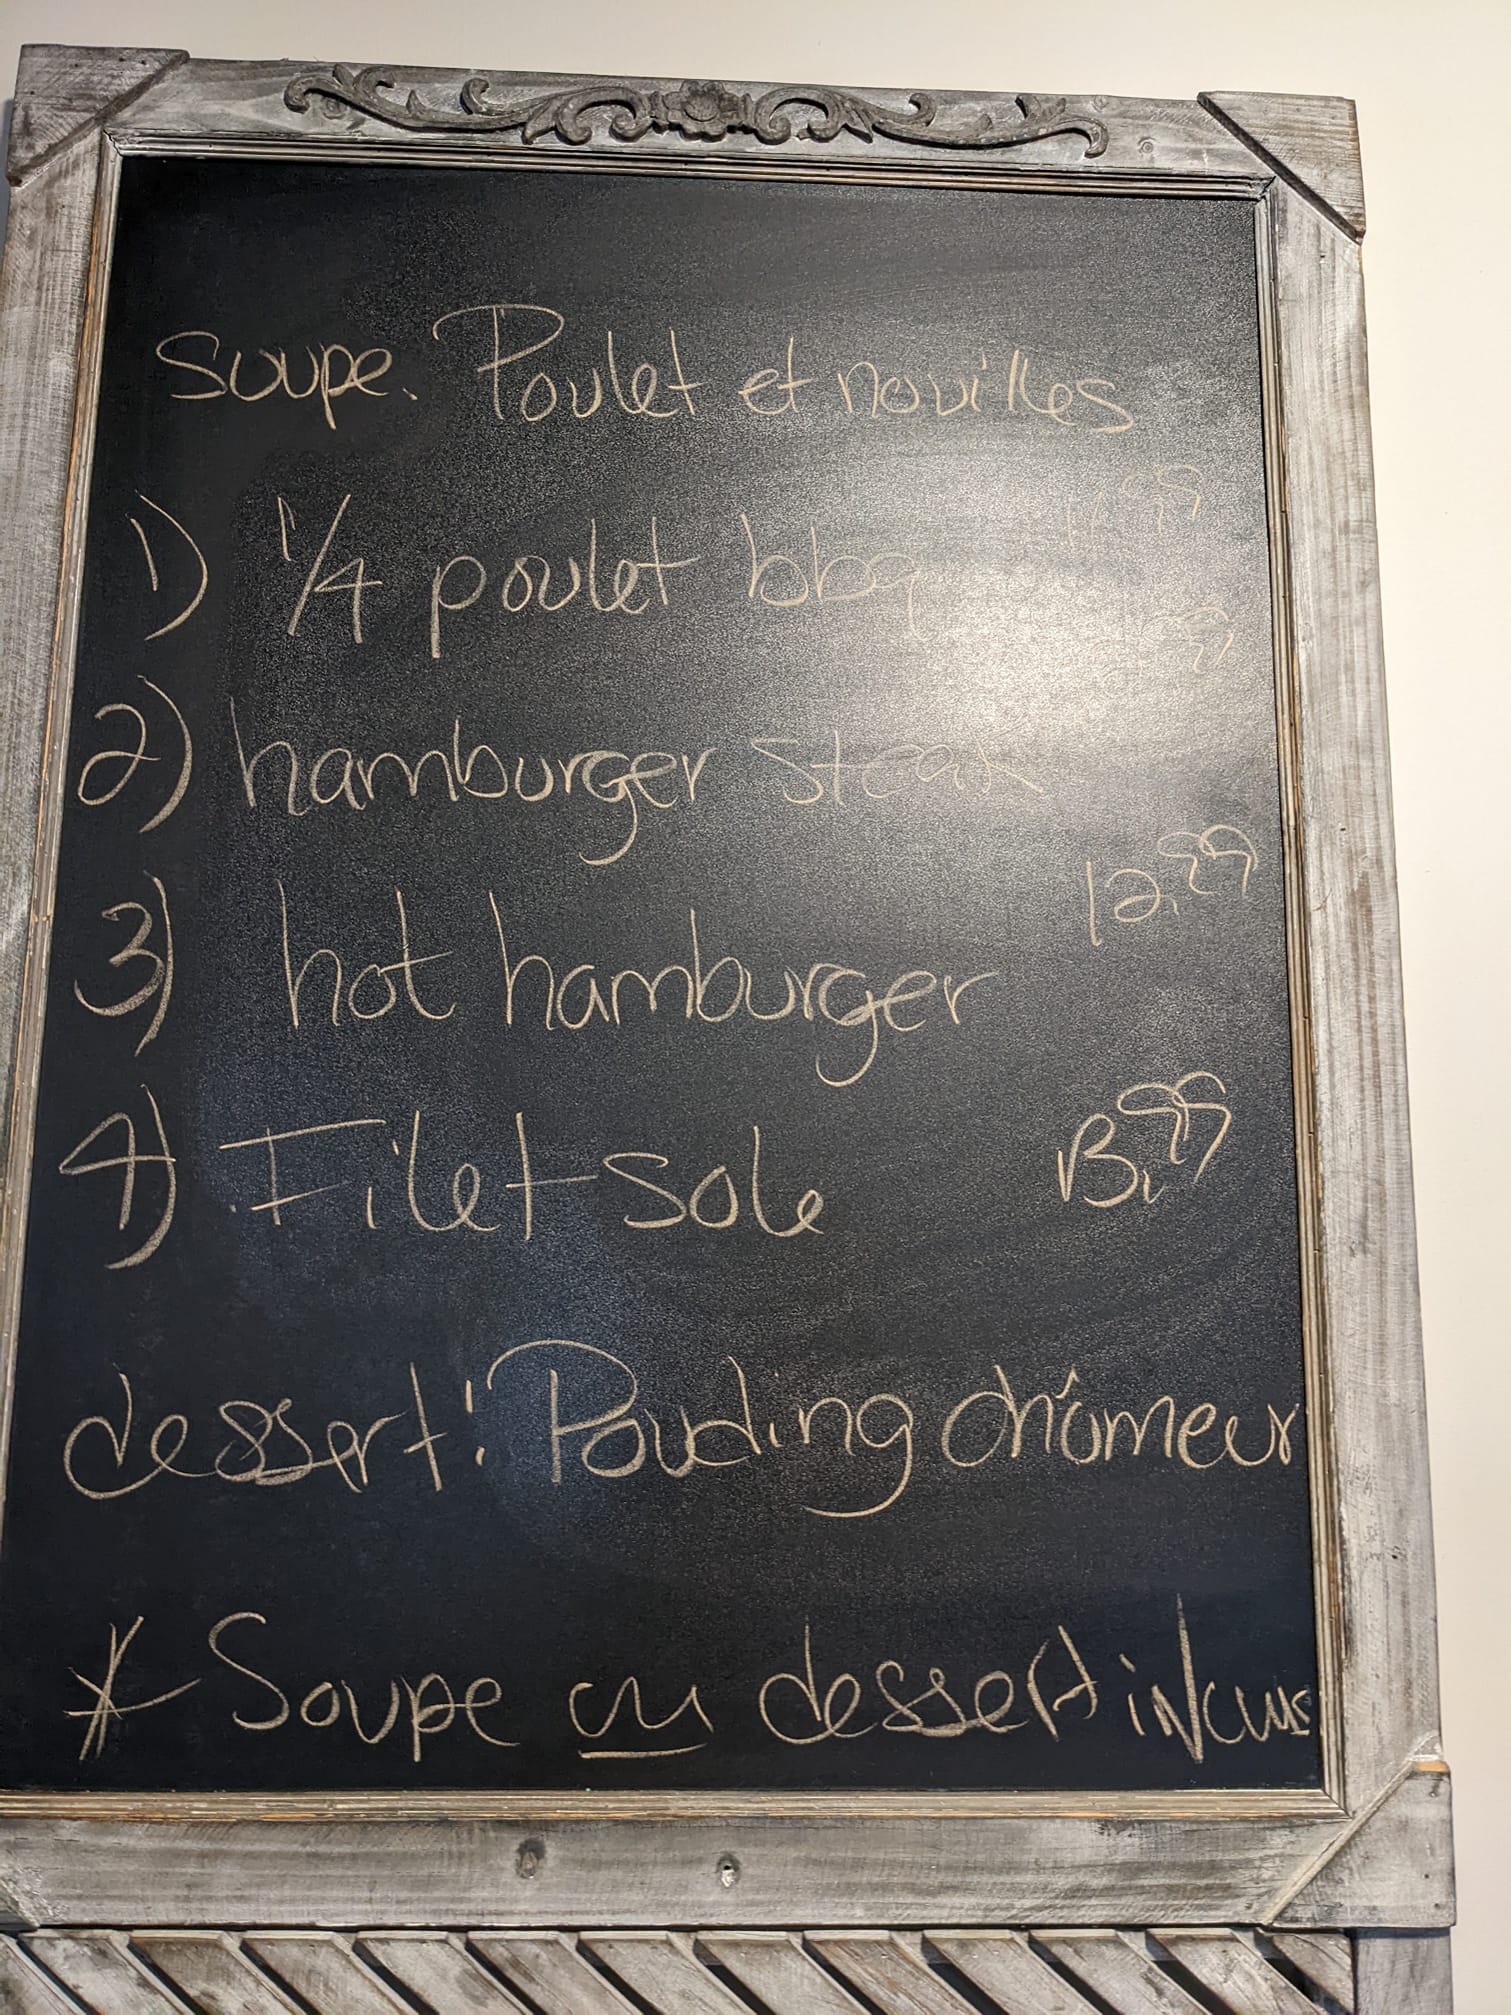 Soupe. Poulet et nouilles
1) 1/4 poulet bbq
2) hamburger steak
3) hot hamburger 12.99
4) Filet sole 13.99
dessert: Pouding chômeur
* Soupe ou dessert inclus